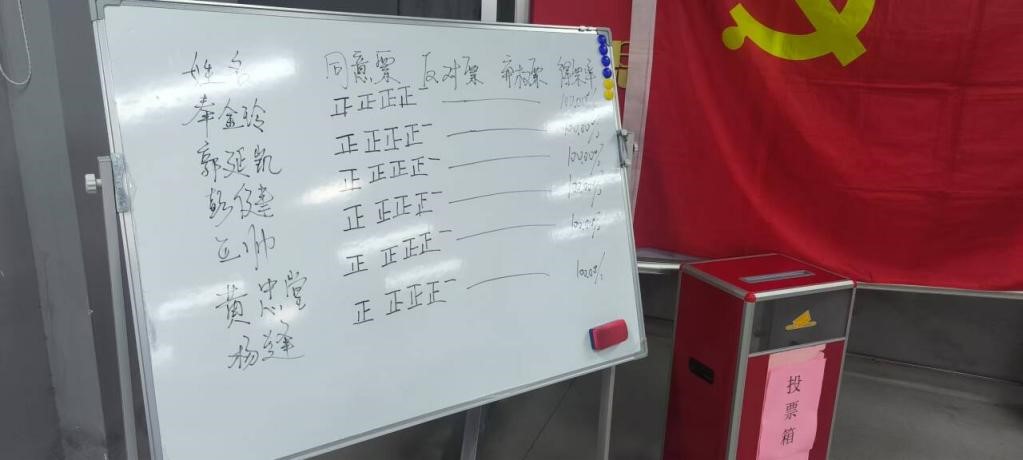 姓名 同意票 反对票 弃权票 得票率
奉金玲 正正正正一 —— 100.00%
郭延凯 正正正正一 —— 100.00%
彭俊 正正正正一 —— 100.00%
帅 正正正正一 —— 100.00%
黄忠堂 正正正正一 —— 100.00%
杨逢 正正正正一 —— 100.00%
投票箱